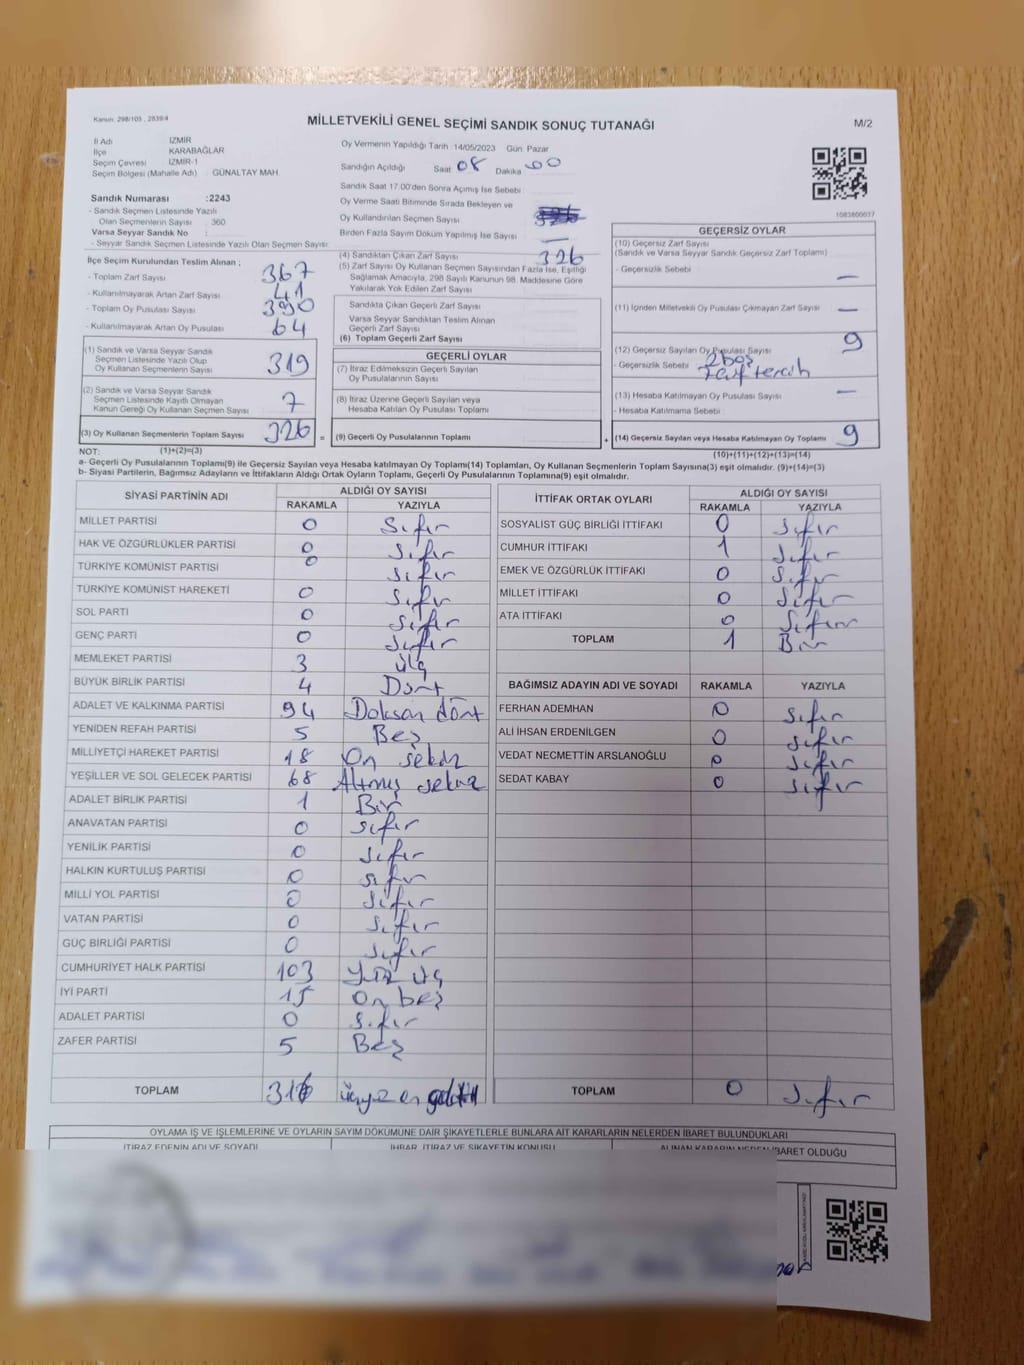 Kanun: 298/105 , 2839/4
MİLLETVEKİLİ GENEL SEÇİMİ SANDIK SONUÇ TUTANAĞI
M/2
İl Adı İZMİR
İlçe KARABAĞLAR
Seçim Çevresi İZMİR-1
Seçim Bölgesi (Mahalle Adı) : GÜNALTAY MAH.
Sandık Numarası :2243
- Sandık Seçmen Listesinde Yazılı
Olan Seçmenlerin Sayısı : 360
Varsa Seyyar Sandık No :
- Seyyar Sandık Seçmen Listesinde Yazılı Olan Seçmen Sayısı:
Oy Vermenin Yapıldığı Tarih :14/05/2023 Gün: Pazar
Sandığın Açıldığı Saat 08 Dakika 00
Sandık Saat 17.00'den Sonra Açılmış İse Sebebi :
Oy Verme Saati Bitiminde Sırada Bekleyen ve
Oy Kullandırılan Seçmen Sayısı :
Birden Fazla Sayım Döküm Yapılmış İse Sayısı : —
1083800037
İlçe Seçim Kurulundan Teslim Alınan ;
- Toplam Zarf Sayısı : 367
- Kullanılmayarak Artan Zarf Sayısı : 41
- Toplam Oy Pusulası : 390
- Kullanılmayarak Artan Oy Pusulası : 64
(1) Sandık ve Varsa Seyyar Sandık
Seçmen Listesinde Yazılı Olup
Oy Kullanan Seçmenlerin Sayısı : 319
(2) Sandık ve Varsa Seyyar Sandık
Seçmen Listesinde Kayıtlı Olmayan
Kanun Gereği Oy Kullanan Seçmen Sayısı : 7
(3) Oy Kullanan Seçmenlerin Toplam Sayısı : 326
(4) Sandıktan Çıkan Zarf Sayısı : 326
(5) Zarf Sayısı Oy Kullanan Seçmen Sayısından Fazla İse, Eşitliği
Sağlamak Amacıyla, 298 Sayılı Kanunun 98. Maddesine Göre
Yakılarak Yok Edilen Zarf Sayısı :
Sandıkta Çıkan Geçerli Zarf Sayısı :
Varsa Seyyar Sandıktan Teslim Alınan
Geçerli Zarf Sayısı :
(6) Toplam Geçerli Zarf Sayısı :
GEÇERLİ OYLAR
(7) İtiraz Edilmeksizin Geçerli Sayılan
Oy Pusulalarının Sayısı :
(8) İtiraz Üzerine Geçerli Sayılan veya
Hesaba Katılan Oy Pusulası Toplamı :
= (9) Geçerli Oy Pusulalarının Toplamı :
GEÇERSİZ OYLAR
(10) Geçersiz Zarf Sayısı
(Sandık ve Varsa Seyyar Sandık Geçersiz Zarf Toplamı) :
- Geçersizlik Sebebi : —
(11) İçinden Milletvekili Oy Pusulası Çıkmayan Zarf Sayısı : —
(12) Geçersiz Sayılan Oy Pusulası Sayısı : 9
- Geçersizlik Sebebi : 2 boş
tercih
(13) Hesaba Katılmayan Oy Pusulası Sayısı : —
- Hesaba Katılmama Sebebi :
+ (14) Geçersiz Sayılan veya Hesaba Katılmayan Oy Toplamı : 9
NOT: (1)+(2)=(3) (10)+(11)+(12)+(13)=(14)
a- Geçerli Oy Pusulalarının Toplamı(9) ile Geçersiz Sayılan veya Hesaba katılmayan Oy Toplamı(14) Toplamları, Oy Kullanan Seçmenlerin Toplam Sayısına(3) eşit olmalıdır. (9)+(14)=(3)
b- Siyasi Partilerin, Bağımsız Adayların ve İttifakların Aldığı Ortak Oyların Toplamı, Geçerli Oy Pusulalarının Toplamına(9) eşit olmalıdır.
SİYASİ PARTİNİN ADI ALDIĞI OY SAYISI
RAKAMLA YAZIYLA
MİLLET PARTİSİ 0 Sıfır
HAK VE ÖZGÜRLÜKLER PARTİSİ 0 sıfır
TÜRKİYE KOMÜNİST PARTİSİ 0 sıfır
TÜRKİYE KOMÜNİST HAREKETİ 0 sıfır
SOL PARTİ 0 sıfır
GENÇ PARTİ 0 sıfır
MEMLEKET PARTİSİ 3 üç
BÜYÜK BİRLİK PARTİSİ 4 Dört
ADALET VE KALKINMA PARTİSİ 94 Doksan dört
YENİDEN REFAH PARTİSİ 5 Beş
MİLLİYETÇİ HAREKET PARTİSİ 18 On sekiz
YEŞİLLER VE SOL GELECEK PARTİSİ 68 Altmış sekiz
ADALET BİRLİK PARTİSİ 1 Bir
ANAVATAN PARTİSİ 0 sıfır
YENİLİK PARTİSİ 0 sıfır
HALKIN KURTULUŞ PARTİSİ 0 sıfır
MİLLİ YOL PARTİSİ 0 sıfır
VATAN PARTİSİ 0 sıfır
GÜÇ BİRLİĞİ PARTİSİ 0 sıfır
CUMHURİYET HALK PARTİSİ 103 Yüz üç
İYİ PARTİ 15 On beş
ADALET PARTİSİ 0 sıfır
ZAFER PARTİSİ 5 Beş
TOPLAM
İTTİFAK ORTAK OYLARI ALDIĞI OY SAYISI
RAKAMLA YAZIYLA
SOSYALIST GÜÇ BİRLİĞİ İTTİFAKI 0 sıfır
CUMHUR İTTİFAKI 1 sıfır
EMEK VE ÖZGÜRLÜK İTTİFAKI 0 sıfır
MİLLET İTTİFAKI 0 sıfır
ATA İTTİFAKI 0 sıfır
TOPLAM 1 Bir
BAĞIMSIZ ADAYIN ADI VE SOYADI RAKAMLA YAZIYLA
FERHAN ADEMHAN 0 sıfır
ALİ İHSAN ERDENİLGEN 0 sıfır
VEDAT NECMETTİN ARSLANOĞLU 0 sıfır
SEDAT KABAY 0 sıfır
TOPLAM 0 sıfır
OYLAMA İŞ VE İŞLEMLERİNE VE OYLARIN SAYIM DÖKÜMÜNE DAİR ŞİKAYETLERLE BUNLARA AİT KARARLARIN NELERDEN İBARET BULUNDUKLARI
İTİRAZ EDENİN ADI VE SOYADI İHBAR, İTİRAZ VE ŞİKAYETİN KONUSU ALINAN KARARIN NEDEN İBARET OLDUĞU